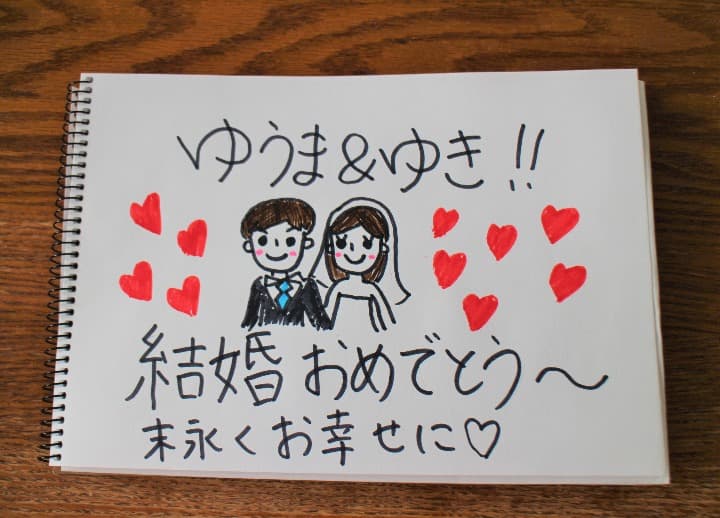 ゆうま&ゆき!!
結婚おめでとう～
末永くお幸せに♡